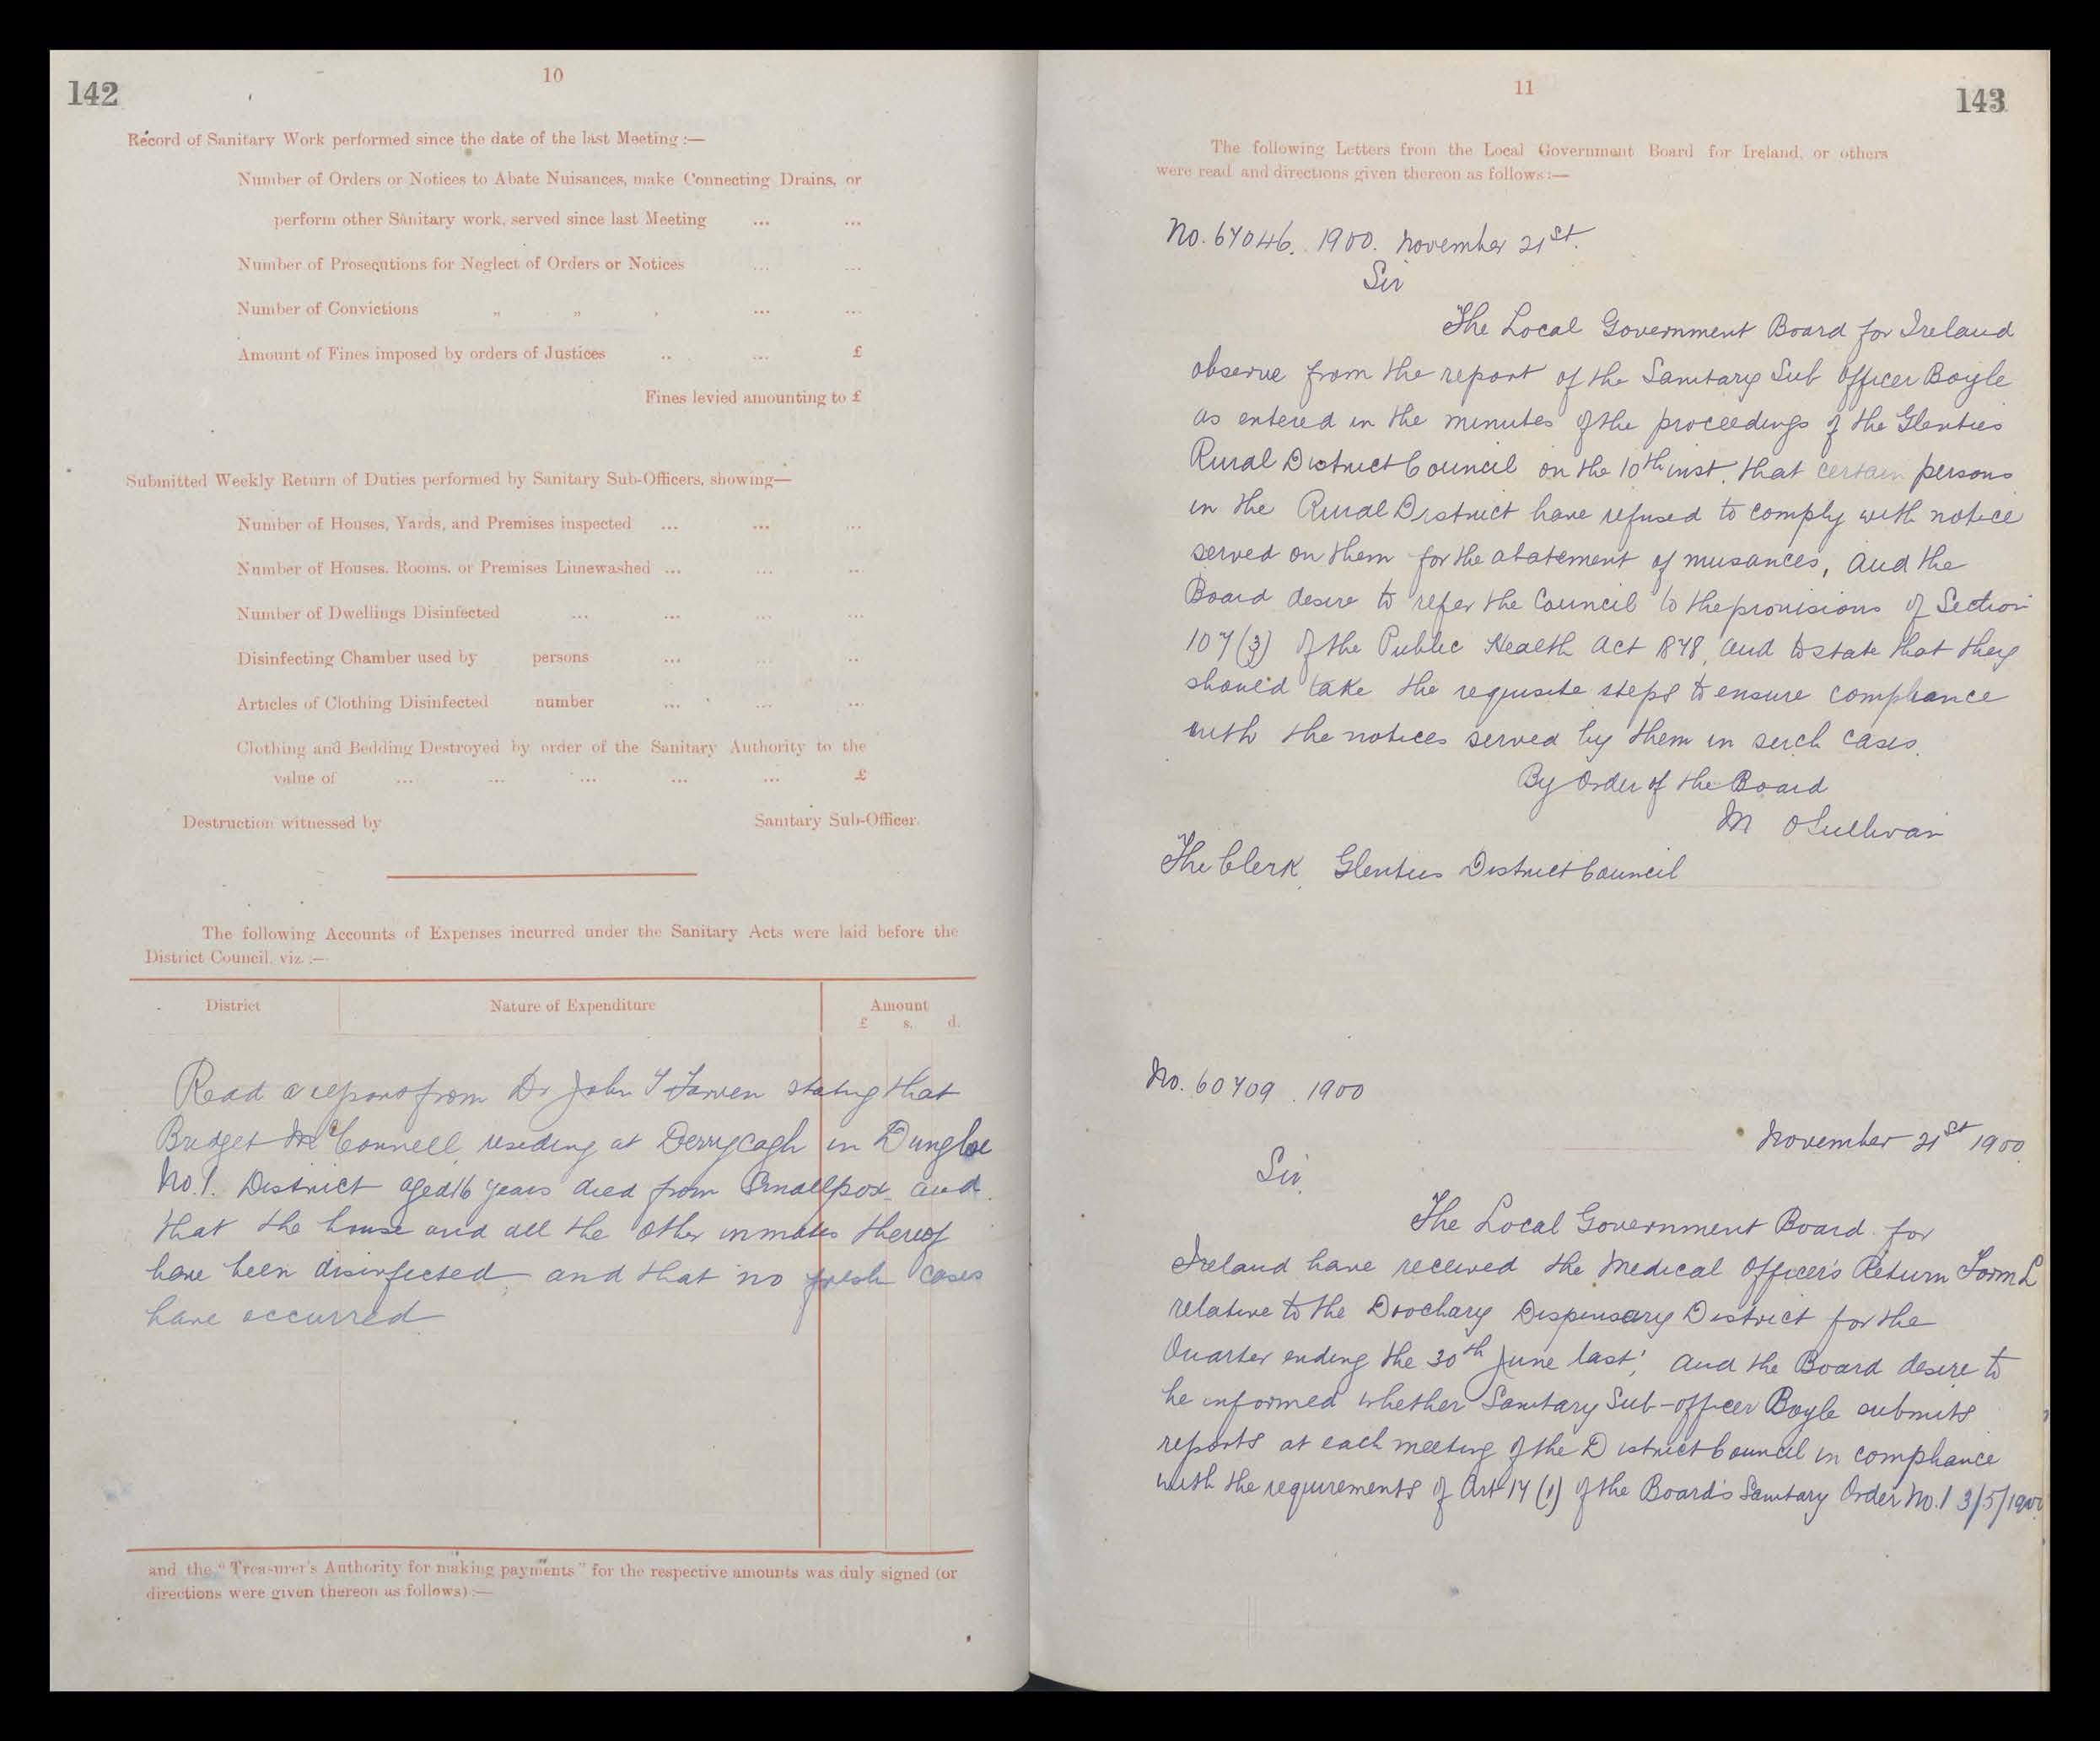 142
10
Record of Sanitary Work performed since the date of the last Meeting :—
Number of Orders or Notices to Abate Nuisances, make Connecting Drains, or
perform other Sanitary work, served since last Meeting ... ...
Number of Prosecutions for Neglect of Orders or Notices ... ...
Number of Convictions „ „ ... ...
Amount of Fines imposed by orders of Justices .. ... £
Fines levied amounting to £
Submitted Weekly Return of Duties performed by Sanitary Sub-Officers, showing—
Number of Houses, Yards, and Premises inspected ... ... ...
Number of Houses, Rooms, or Premises Limewashed ... ... ...
Number of Dwellings Disinfected ... ... ... ...
Disinfecting Chamber used by persons ... ... ..
Articles of Clothing Disinfected number ... ... ...
Clothing and Bedding Destroyed by order of the Sanitary Authority to the
value of ... ... ... ... ... £
Destruction witnessed by Sanitary Sub-Officer.
The following Accounts of Expenses incurred under the Sanitary Acts were laid before the
District Council, viz. :—
District Nature of Expenditure Amount
£ s. d.
Read a report from Dr John stating that
Bridget McConnell residing at Derrycagh in Dungloe
No. 1. District aged 16 years died from Smallpox and
that the house and all the other inmates thereof
have been disinfected and that no fresh cases
have occurred
and the "Treasurer's Authority for making payments" for the respective amounts was duly signed (or
directions were given thereon as follows) :—
11
143
The following Letters from the Local Government Board for Ireland, or others
were read and directions given thereon as follows :—
No. 67046. 1900. November 21st.
Sir
The Local Government Board for Ireland
observe from the report of the Sanitary Sub Officer Boyle
as entered in the minutes of the proceedings of the Glenties
Rural District Council on the 10th inst. that certain persons
in the Rural District have refused to comply with notice
served on them for the abatement of nusances, and the
Board desire to refer the Council to the provisions of Section
107 (3) of the Public Health Act 1878, and to state that they
should take the requisite steps to ensure compliance
with the notices served by them in such cases.
By Order of the Board
M OSullivan
The Clerk, Glenties District Council
No. 60709. 1900
November 21st 1900
Sir,
The Local Government Board for
Ireland have received the Medical Officer's Return Form L
relative to the Doochary Dispensary District for the
Quarter ending the 30th June last; and the Board desire to
be informed whether Sanitary Sub-officer Boyle submits
reports at each meeting of the District Council in compliance
with the requirements of Art 17 (1) of the Board's Sanitary Order No. 1 3/5/1900